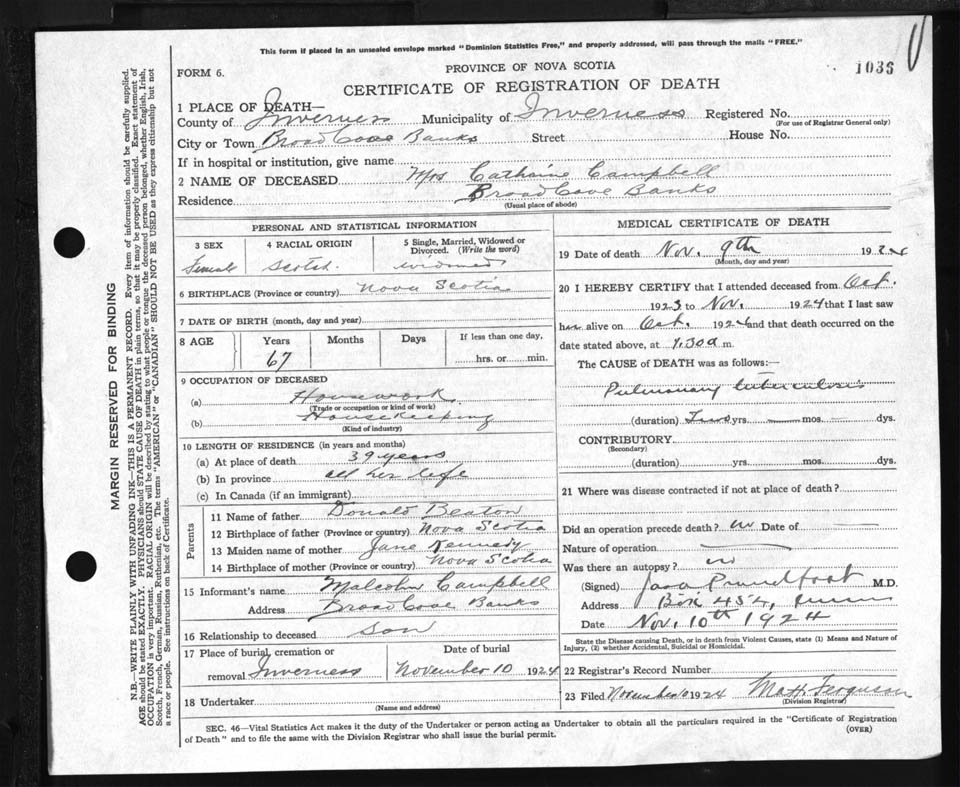 This form if placed in an unsealed envelope marked "Dominion Statistics Free," and properly addressed, will pass through the mails "FREE."
1035
FORM 6.
PROVINCE OF NOVA SCOTIA
CERTIFICATE OF REGISTRATION OF DEATH
1 PLACE OF DEATH—
County of Inverness Municipality of Inverness Registered No.
(For use of Registrar General only)
City or Town Broad Cove Banks Street House No.
If in hospital or institution, give name
2 NAME OF DECEASED Mrs Catharine Campbell
Residence Broad Cove Banks
(Usual place of abode)
PERSONAL AND STATISTICAL INFORMATION
3 SEX
Female
4 RACIAL ORIGIN
Scotch
5 Single, Married, Widowed or Divorced. (Write the word)
Widowed
6 BIRTHPLACE (Province or country) Nova Scotia
7 DATE OF BIRTH (month, day and year)
8 AGE Years Months Days If less than one day,
67 hrs. or min.
9 OCCUPATION OF DECEASED
(a) Housework
(Trade or occupation or kind of work)
(b) Housekeeping
(Kind of industry)
10 LENGTH OF RESIDENCE (in years and months)
(a) At place of death 39 years
(b) In province all her life
(c) In Canada (if an immigrant)
Parents
11 Name of father Donald Beaton
12 Birthplace of father (Province or country) Nova Scotia
13 Maiden name of mother Jane Kennedy
14 Birthplace of mother (Province or country) Nova Scotia
15 Informant's name Malcolm Campbell
Address Broad Cove Banks
16 Relationship to deceased son
17 Place of burial, cremation or removal Inverness
Date of burial
November 10 1924
18 Undertaker
(Name and address)
MEDICAL CERTIFICATE OF DEATH
19 Date of death Nov. 9th 192
(Month, day and year)
20 I HEREBY CERTIFY that I attended deceased from Oct.
1923 to Nov. 1924 that I last saw
her alive on Oct. 1924 and that death occurred on
date stated above, at 1.30 a m.
The CAUSE OF DEATH was as follows:—
Pulmonary tuberculosis
(duration) Two yrs. — mos. — dys.
CONTRIBUTORY
(Secondary)
(duration) yrs. mos. dys.
21 Where was disease contracted if not at place of death?
Did an operation precede death? no Date of —
Nature of operation —
Was there an autopsy? no
(Signed) Proudfoot M.D.
Address Box 454,
Date Nov. 10th 1924
State the Disease causing Death, or in death from Violent Causes, state (1) Means and Nature of Injury, (2) whether Accidental, Suicidal or Homicidal.
22 Registrar's Record Number
23 Filed November 10 1924 Ferguson
(Division Registrar)
SEC. 46—Vital Statistics Act makes it the duty of the Undertaker or person acting as Undertaker to obtain all the particulars required in the "Certificate of Registration
of Death" and to file the same with the Division Registrar who shall issue the burial permit.
(OVER)
MARGIN RESERVED FOR BINDING
N.B.—WRITE PLAINLY WITH UNFADING INK—THIS IS A PERMANENT RECORD. Every item of information should be carefully supplied.
AGE should be stated EXACTLY. PHYSICIANS should STATE CAUSE OF DEATH in plain terms, so that it may be properly classified. Exact statement of
OCCUPATION is very important. RACIAL ORIGIN will be described by stating to what people or tongue the deceased person belonged, whether English, Irish,
Scotch, French, German, Russian, Ruthenian, etc. The terms "AMERICAN" or "CANADIAN" SHOULD NOT BE USED as they express citizenship but not
a race or people. See instructions on back of Certificate.